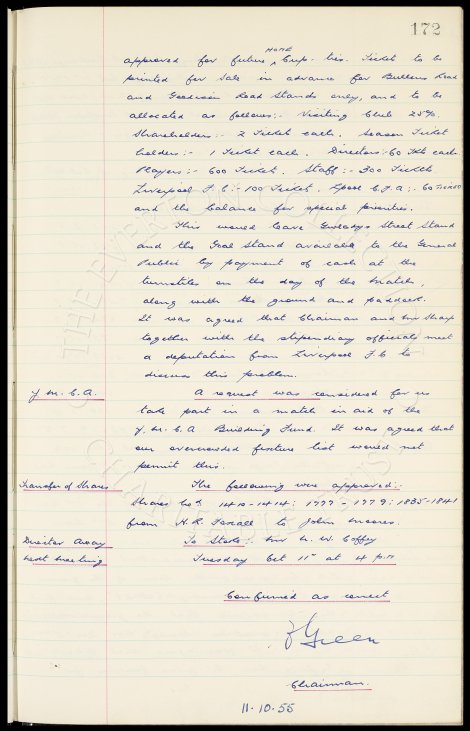 172
approved for future HOME Cup- ties. Ticket to be
printed for sale in advance for Bullens Road
and Goodison Road Stands only, and to be
allocated as follows:- Visiting Club 25%.
Shareholders:- 2 Ticket each. Season Ticket
holders:- 1 Ticket each. Directors: 60 Tkts each.
Players:- 600 Ticket. Staff:- 300 Tickets
Liverpool F.C:- 100 Ticket. L'pool C.F.A:- 60 Tickets
and the balance for special priorities.
This would leave Gwladys Street Stand
and the Goal Stand available to the General
Public by payment of cash at the
turnstiles on the day of the match,
along with the ground and paddock.
It was agreed that Chairman and Mr Sharp
together with the stipendiary officials meet
a deputation from Liverpool F.C to
discuss this problem.
Y.M.C.A. A request was considered for us
take part in a match in aid of the
Y.M.C.A Building Fund. It was agreed that
our overcrowded fixture list would not
permit this.
Transfer of Shares The following were approved:-
Shares Nos. 1410-1414: 1777-1779: 1835-1841
from H.R. to John Moores.
Director Away To Stoke:- Mr N. W. Coffey
next meeting Tuesday Oct 11th at 4 p.m
Confirmed as correct
Green
Chairman.
11.10.55
THE EVERTON COLLECTION
CHARITABLE TRUST